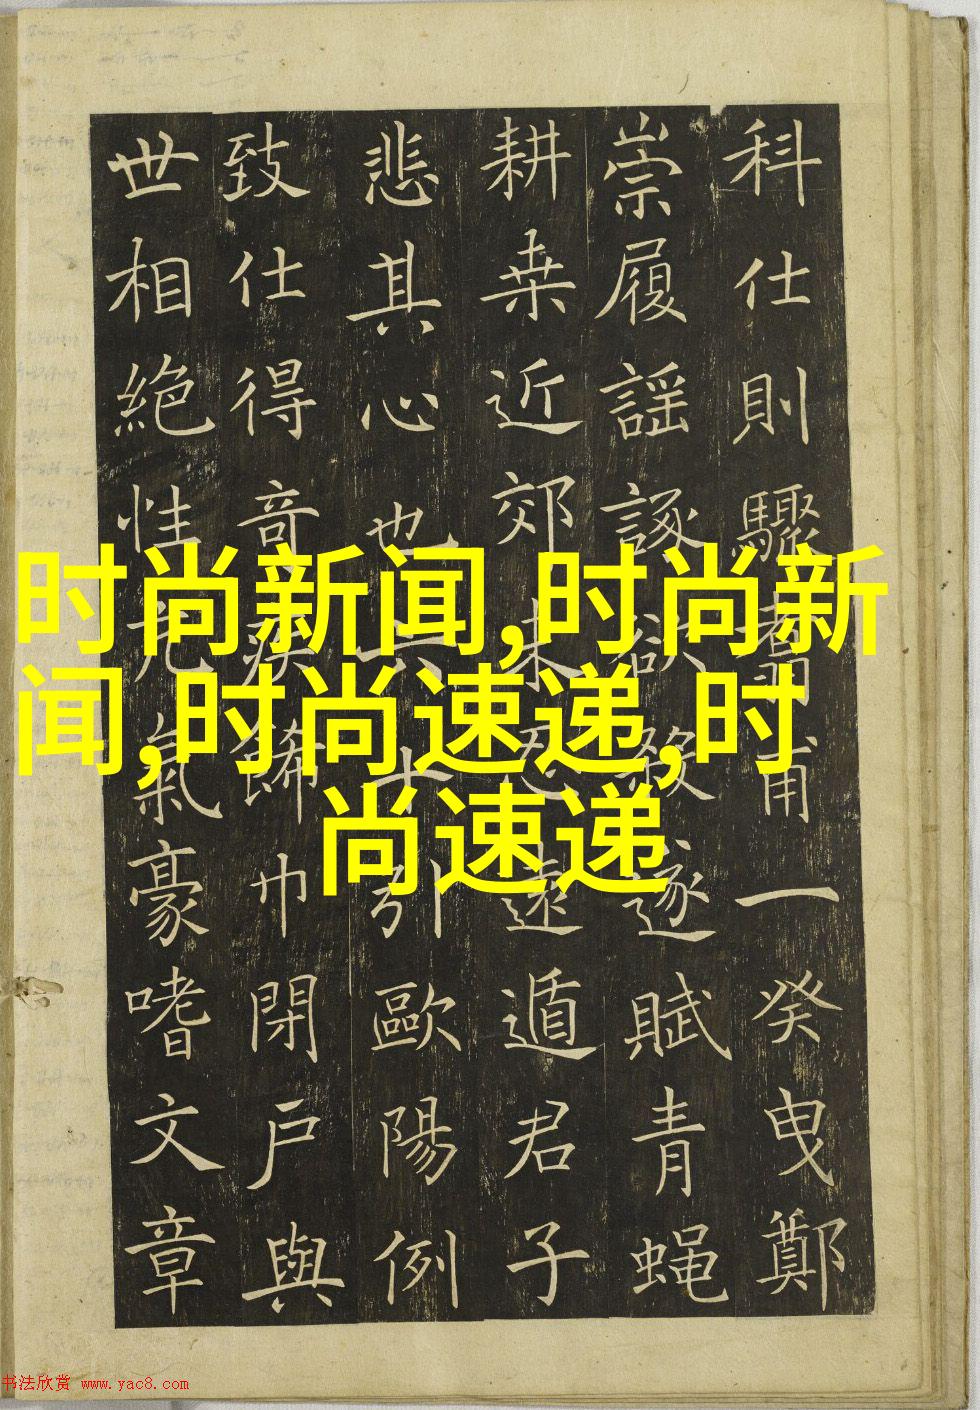 科仕則驟舊甫一癸曳鄭
崇履謡諑遂賦青蝇
耕桒近郊未忍遠遁君子
悲其心也六十引歐陽例
致仕得奇疾巾閉戶與
世相絶性尤氣豪嗜文章
时尚新闻,时尚新
闻,时尚速递,时
尚速递
书法欣赏 www.yac8.com